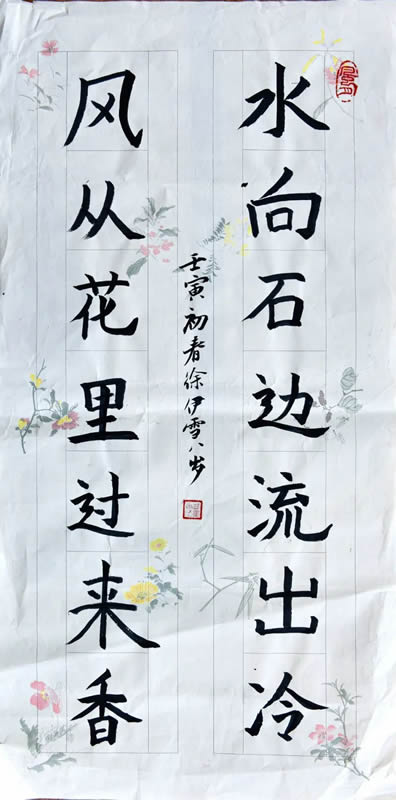 水向石边流出冷
风从花里过来香
壬寅初春徐伊雪八岁